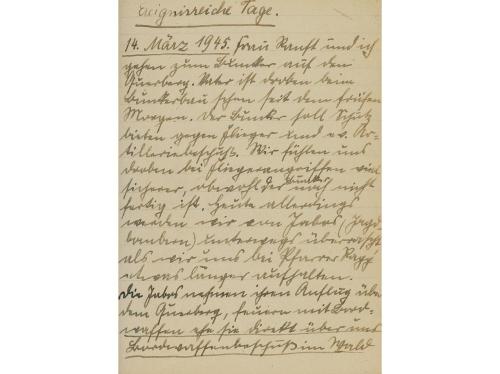 Ereignisreiche Tage.
14. März 1945. Frau Ranft und ich
gehen zum Bunker auf den
Querberg. Vater ist droben beim
Bunkerbau schon seit dem frühen
Morgen. Der Bunker soll Schutz
bieten gegen Flieger und ev. Ar-
tilleriebeschuß. Wir fühlten uns
droben bei Fliegerangriffen viel
sicherer, obwohl der Bunker noch nicht
fertig ist. Heute allerdings
werden wir von Jabos (Jagd-
bombern) unterwegs überrascht
als wir uns bei Pfarrer Rapp
etwas länger aufhalten.
Die Jabos nehmen ihren Anflug übe
dem Querberg, feuern mit Bord-
waffen ehe sie direkt über uns
Bordwaffenbeschuß im Wald